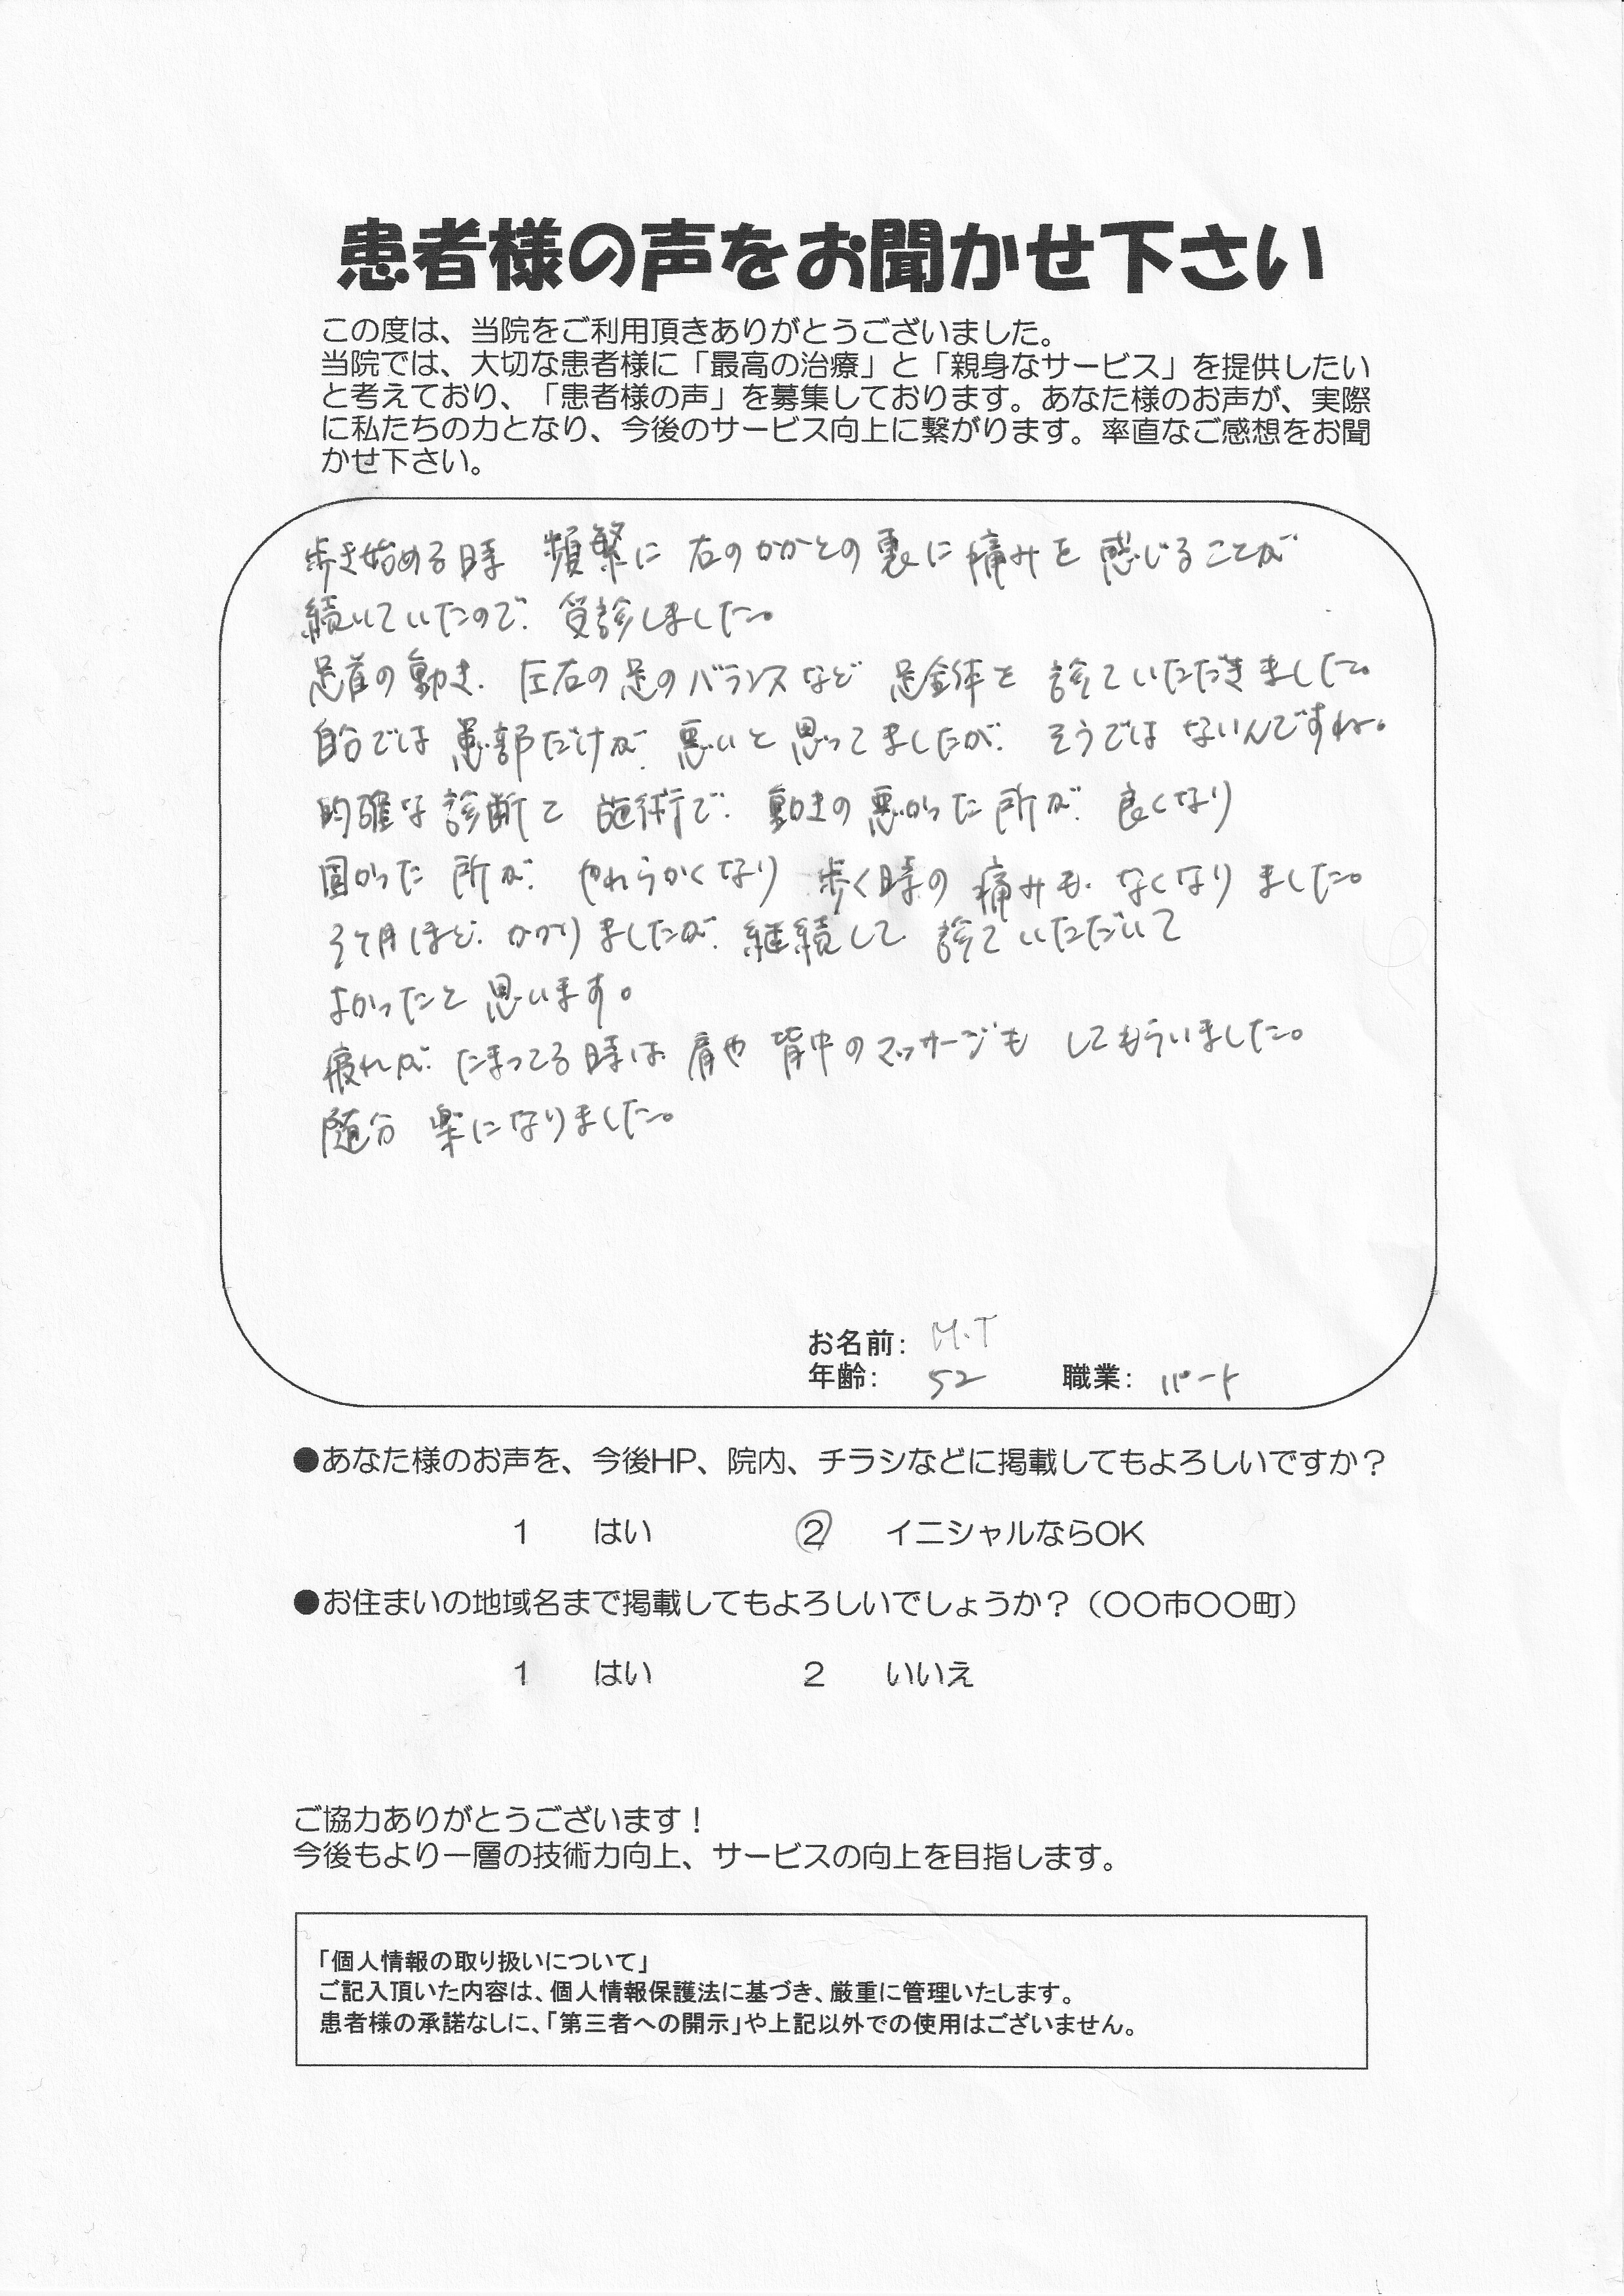 患者様の声をお聞かせ下さい
この度は、当院をご利用頂きありがとうございました。
当院では、大切な患者様に「最高の治療」と「親身なサービス」を提供したい
と考えており、「患者様の声」を募集しております。あなた様のお声が、実際
に私たちの力となり、今後のサービス向上に繋がります。率直なご感想をお聞
かせ下さい。
歩き始める時 頻繁に 右のかかとの裏に痛みを感じることが
続いていたので、受診しました。
足首の動き、左右の足のバランスなど 足全体を 診ていただきました。
自分では患部だけが、悪いと思ってましたが、そうではないんですね。
的確な診断と施術で、動きの悪かった所が、良くなり
固かった所が、やわらかくなり 歩く時の痛みも、なくなりました。
3ケ月ほど、かかりましたが、継続して、診ていただいて
よかったと思います。
疲れが、たまってる時は、肩や背中のマッサージも してもらいました。
随分 楽になりました。
お名前: M.T
年齢: 52 職業: パート
●あなた様のお声を、今後HP、院内、チラシなどに掲載してもよろしいですか？
1 はい 2 イニシャルならOK
●お住まいの地域名まで掲載してもよろしいでしょうか？（〇〇市〇〇町）
1 はい 2 いいえ
ご協力ありがとうございます！
今後もより一層の技術力向上、サービスの向上を目指します。
「個人情報の取り扱いについて」
ご記入頂いた内容は、個人情報保護法に基づき、厳重に管理いたします。
患者様の承諾なしに、「第三者への開示」や上記以外での使用はございません。